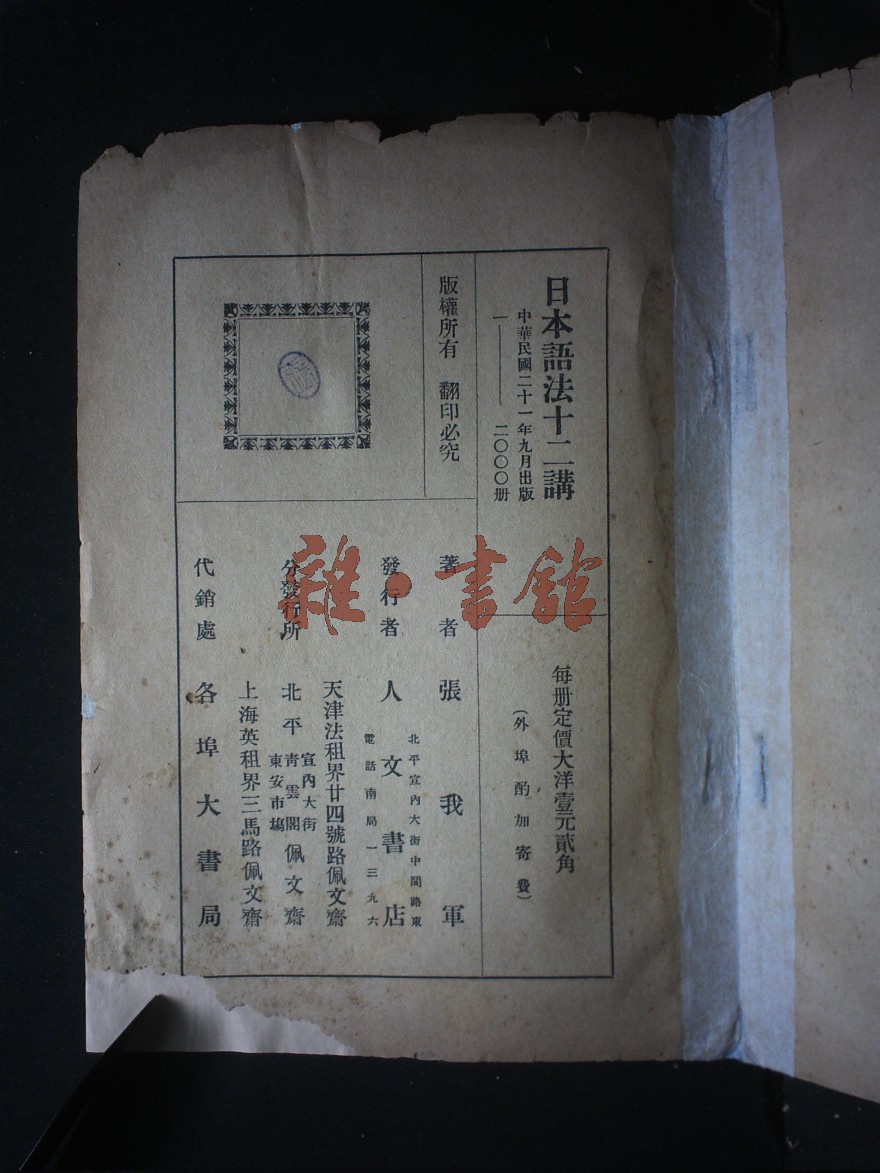 日本語法十二講
中華民國二十一年九月出版
一——二〇〇〇册
每册定價大洋壹元貳角
（外埠酌加寄費）
版權所有 翻印必究
著者 張我軍
發行者 人文書店
北平宣內大街中間路東
電話南局一三九六
分發行所
天津法租界廿四號路佩文齋
北平 宣內大街 青雲閣 東安市塲 佩文齋
上海英租界三馬路佩文齋
代銷處 各埠大書局
雜·書館